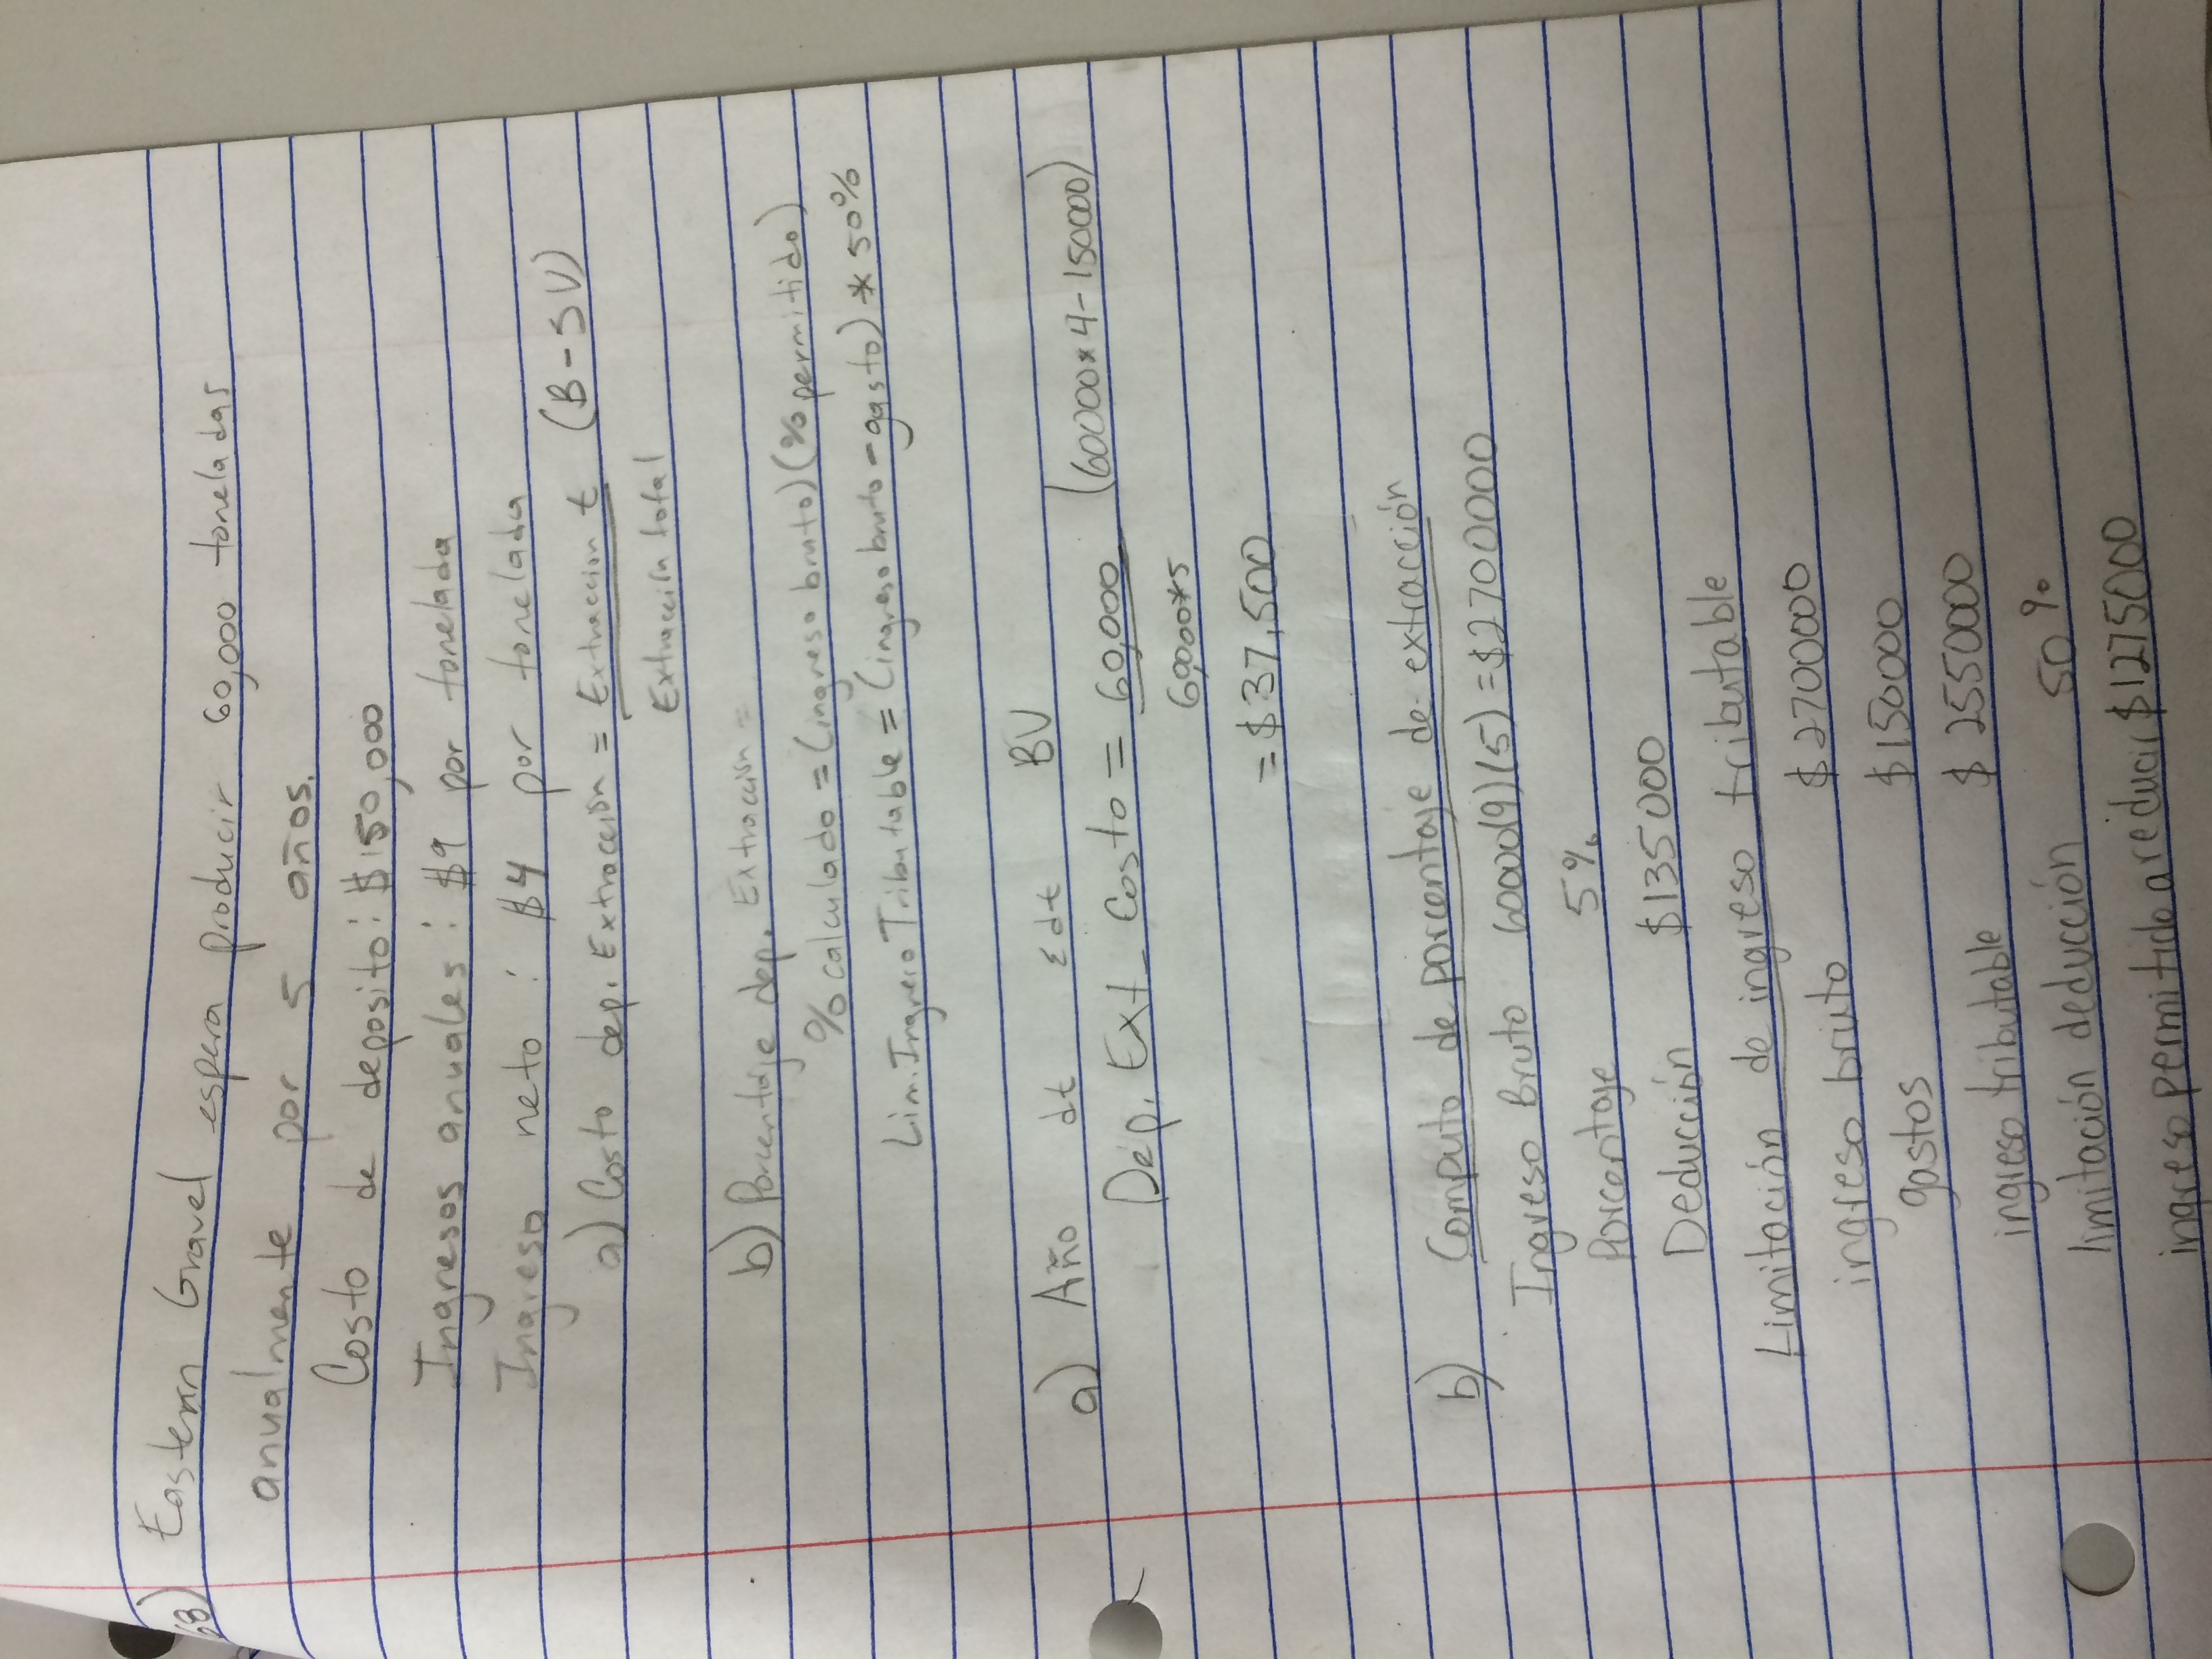 68) Eastern Gravel espera producir 60,000 toneladas
anualmente por 5 años.
Costo de deposito: $150,000
Ingresos anuales: $9 por tonelada
Ingreso neto: $4 por tonelada
a) Costo dep. Extracción = Extraccion t (B-SV)
Extracción total
b) Porcentaje dep. Extracción =
% calculado = (ingreso bruto)(% permitido)
Lim. Ingreso Tributable = (ingreso bruto - gasto) * 50%
a) Año dt Σdt BV
Dep. Ext. Costo = 60,000 (60000*4-150000)
60,000*5
= $37,500
b) Computo de porcentaje de extracción
Ingreso Bruto 60000(9)(5) = $2700000
Porcentaje 5%
Deducción $135000
Limitación de ingreso tributable
ingreso bruto $2700000
gastos $150000
ingreso tributable $2550000
limitación deducción 50%
ingreso permitido a reducir $1275000